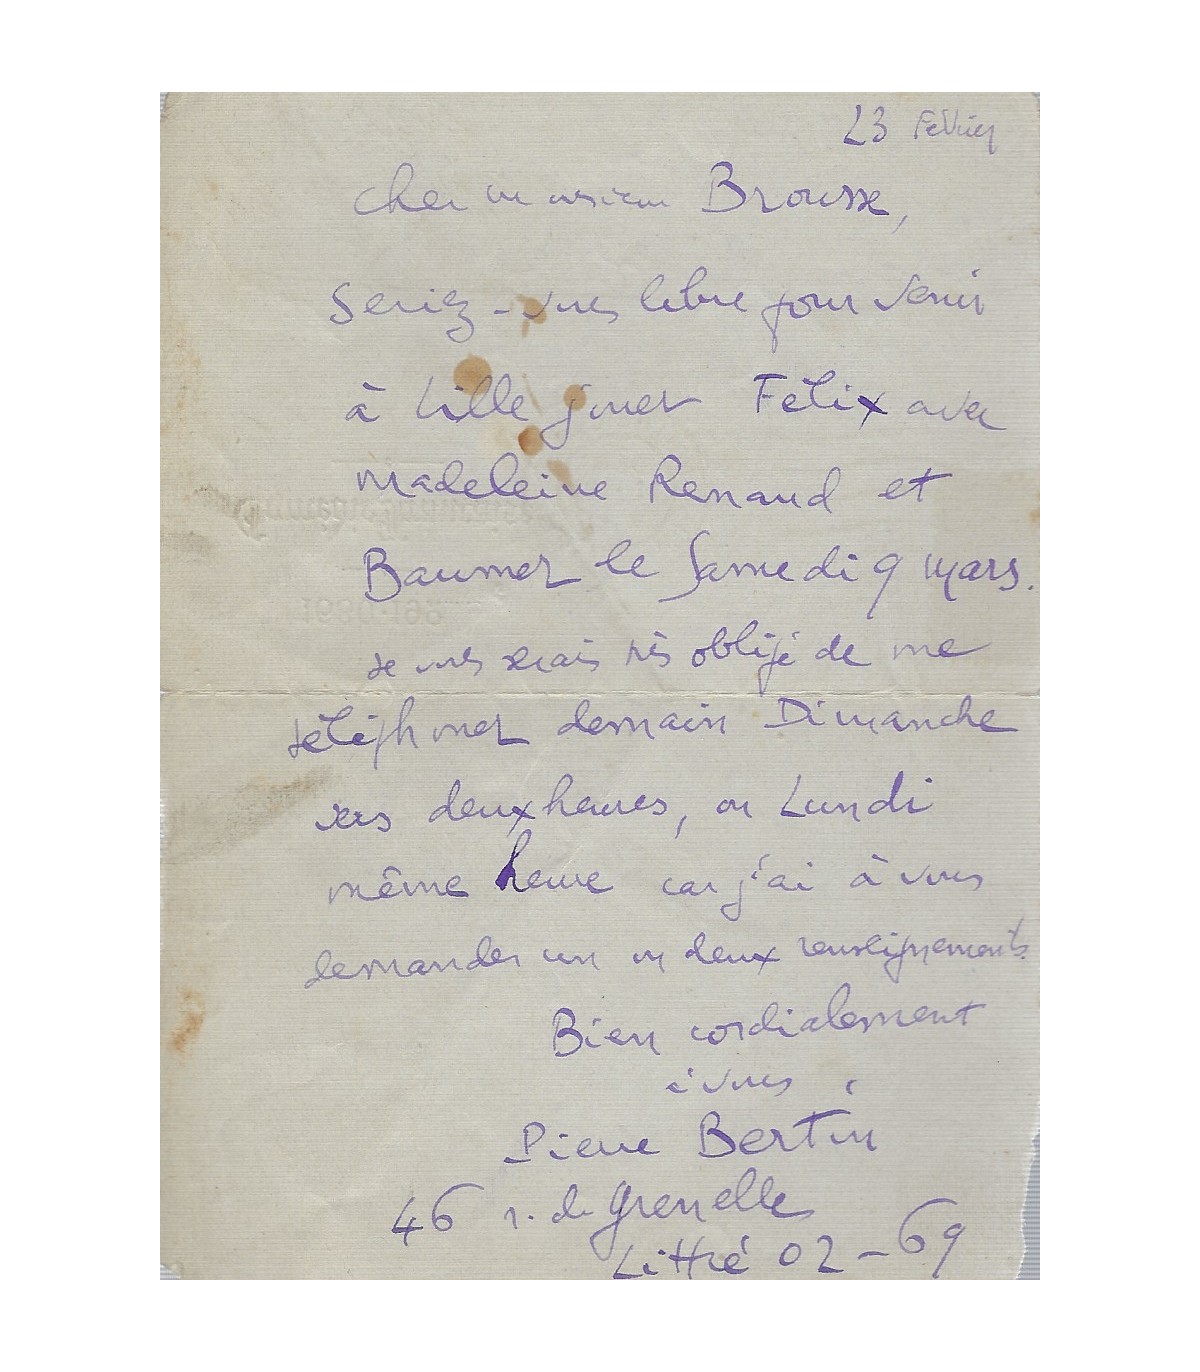 23 Février
Cher monsieur Brousse,
Seriez-vous libre pour venir
à Lille jouer Félix avec
Madeleine Renaud et
Baumer le Samedi 9 mars.
Je vous serais très obligé de me
téléphoner demain Dimanche
vers deux heures, ou Lundi
même heure car j'ai à vous
demander un ou deux renseignements.
Bien cordialement
à vous.
Pierre Bertin
46 r. de Grenelle
Littré 02-69